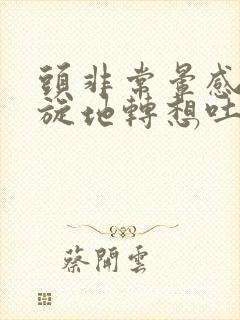 頭非常暈感
旋地轉想吐
蔡開雲